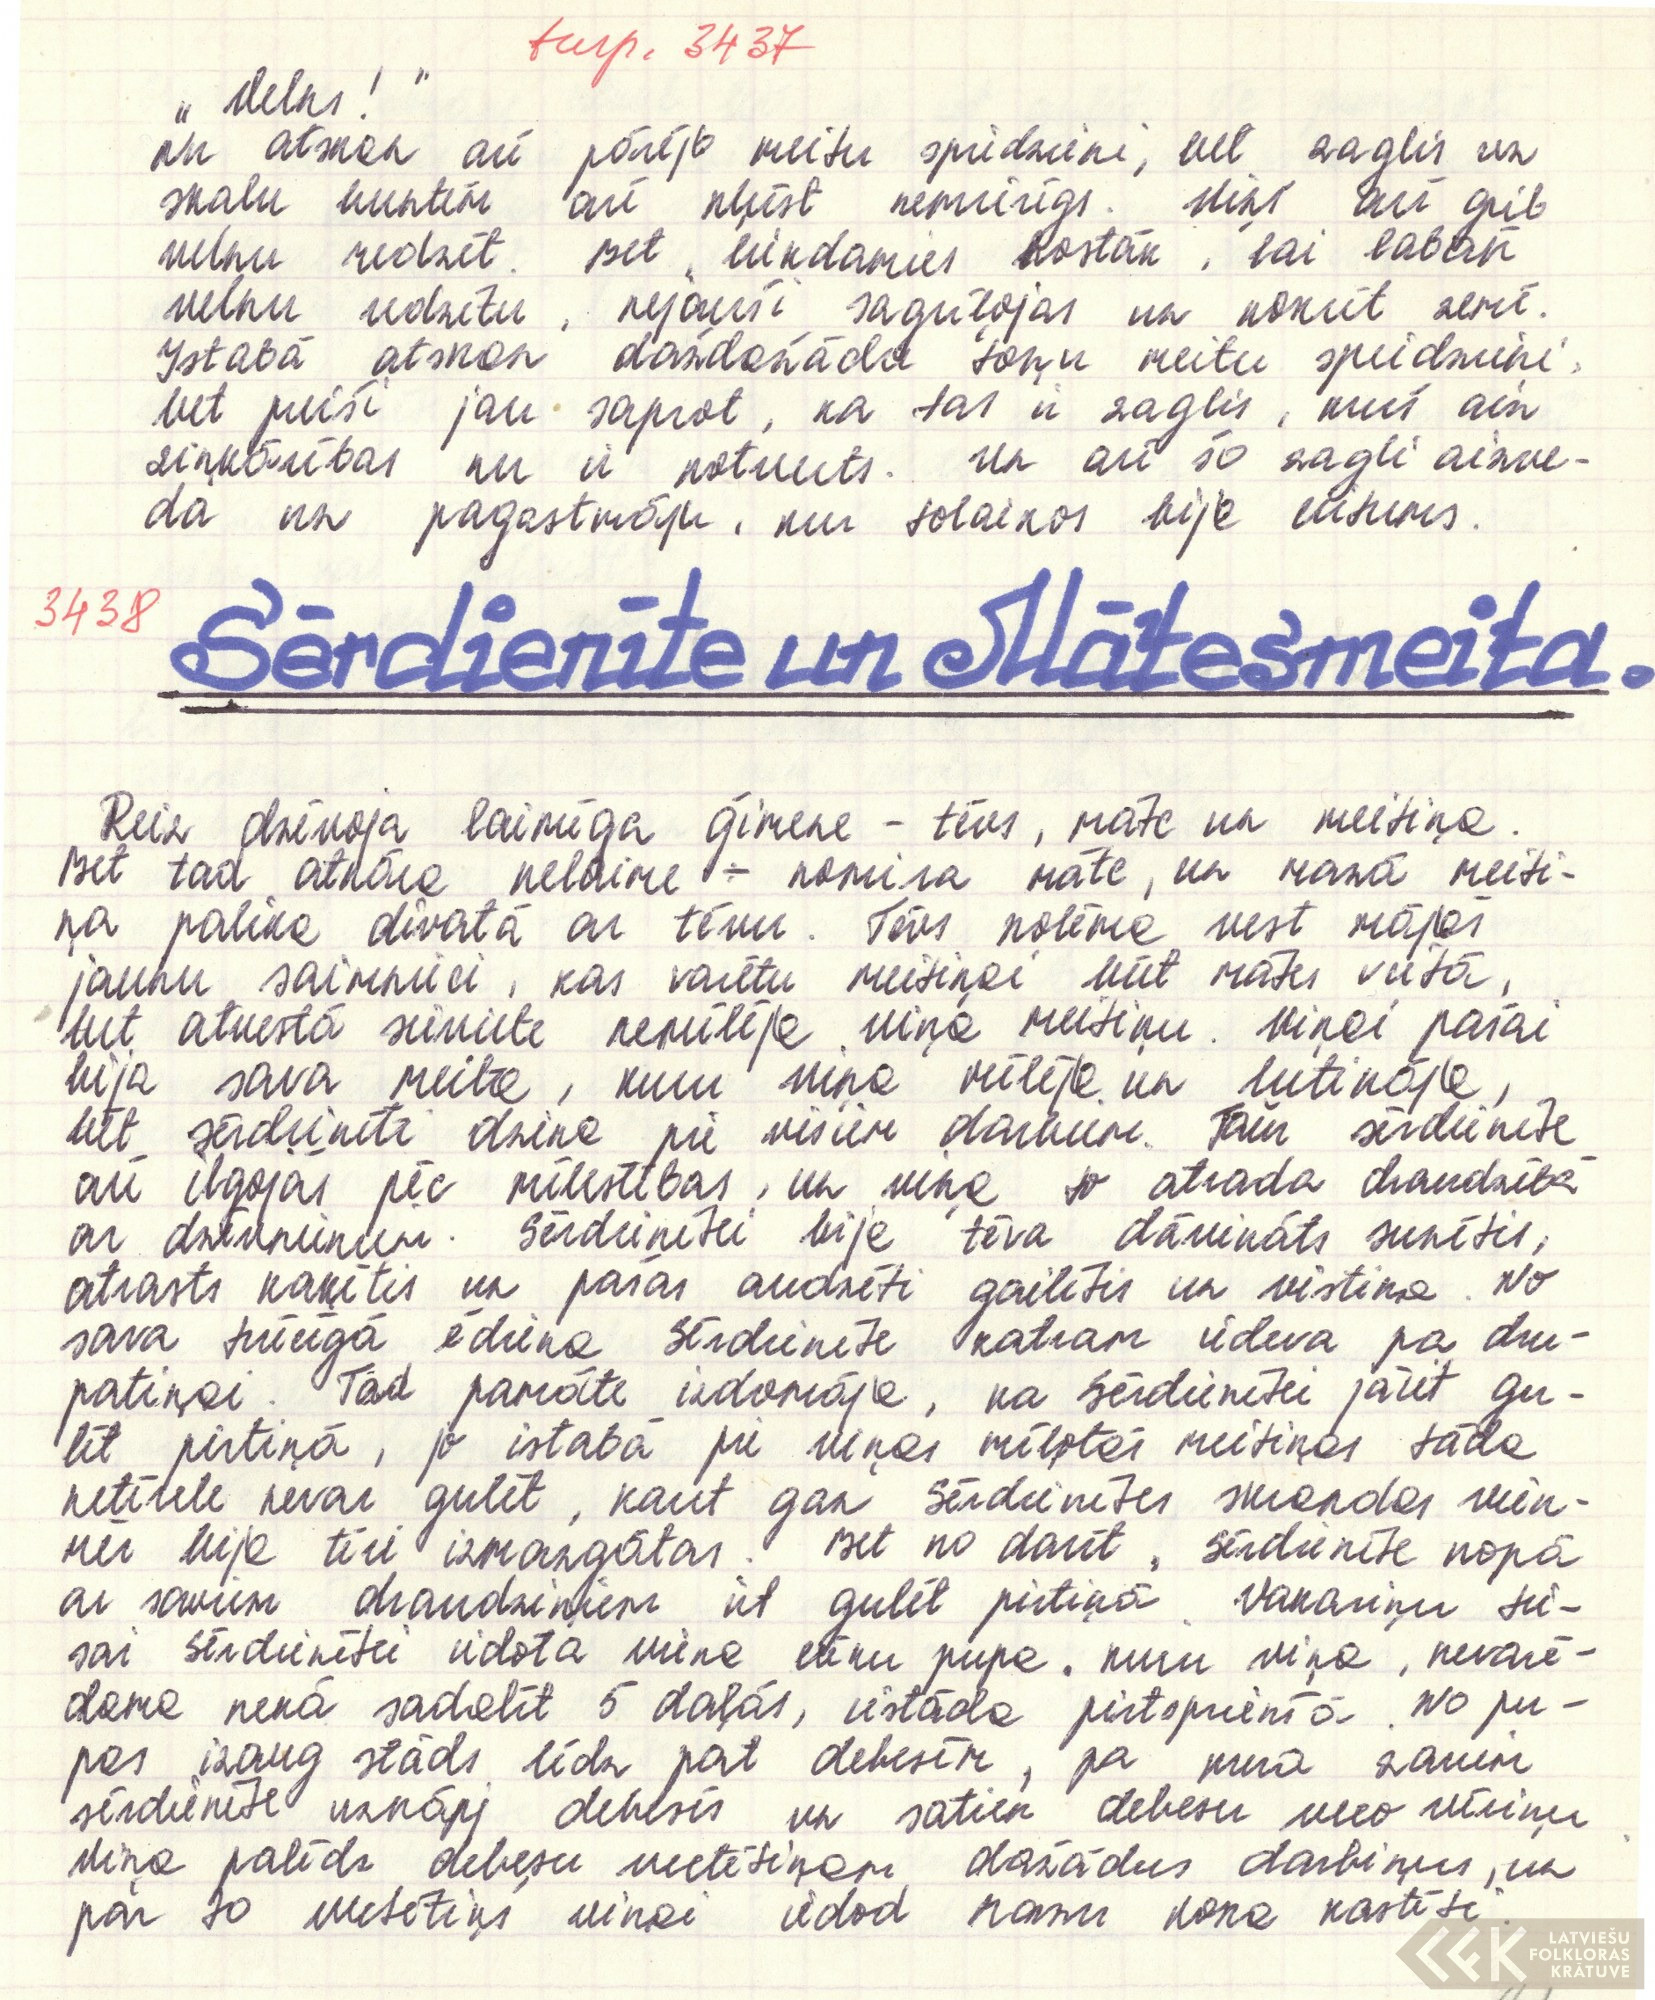 turp. 3437
„Velns!"
un atskan arī pārējo meitu spiedzieni, bet zaglis uz
skalu buntēm arī kļūst nemierīgs. Viņš arī grib
velnu redzēt. Bet, liekdamies nostāk, lai labāk
velnu redzētu, nejauši sagrīļojas un nokrīt zemē.
Istabā atskan daždažādu toņu meitu spiedzieni,
bet puiši jau saprot, ka tas ir zaglis, kurš aiz
ziņkārības nu ir notverts. Un arī šo zagli aizve-
da uz pagastmāju, kur tolaikos bija cietums.
3438
Sērdienīte un Mātesmeita.
Reiz dzīvoja laimīga ģimene – tēvs, māte un meitiņa.
Bet tad atnāca nelaime – nomira māte, un mazā meiti-
ņa palika divatā ar tēvu. Tēvs nolēma vest mājās
jaunu saimnieci, kas varētu meitiņai būt mātes vietā,
bet atvestā sieviete nemīlēja viņa meitiņu. Viņai pašai
bija sava meita, kuru viņa mīlēja un lutināja,
bet sērdienīti dzina pie visiem darbiem. Taču sērdienīte
arī ilgojās pēc mīlestības, un viņa to atrada draudzībā
ar dzīvniekiem. Sērdienītei bija tēva dāvināts sunītis,
atrasts kaķītis un pašas audzēti gailītis un vistiņa. No
sava trūcīgā ēdiena Sērdienīte katram iedeva pa dru-
patiņai. Tad pamāte izdomāja, ka Sērdienītei jāiet gu-
lēt pirtiņā, jo istabā pie viņas mīļotās meitiņas tāda
netīrele nevar gulēt, kaut gan Sērdienītes skrandas vien-
mēr bija tīri izmazgātas. Bet ko darīt, Sērdienīte kopā
ar saviem draudziņiem iet gulēt pirtiņā. Vakariņu tie-
sai Sērdienītei iedota viena cūku pupa, kuru viņa, nevarē-
dama nekā sadalīt 5 daļās, iestāda pirtspriekšā. No pu-
pas izaug stāds līdz pat debesīm, pa kura zariem
sērdienīte uzkāpj debesīs un satiek debesu veco vīriņu
Viņa palīdz debesu vectētiņam dažādus darbiņus, un
par to vectētiņš viņai iedod mazu koka kastīti.
LATVIEŠU
FOLKLORAS
KRĀTUVE